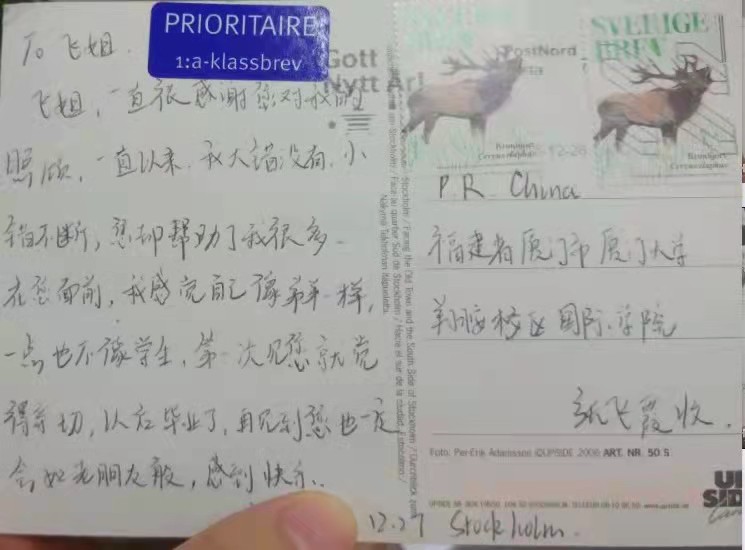 To 飞姐.
飞姐,一直很感谢您对我的
照顾,一直以来,我大错没有,小
错不断,您却帮助了我很多.
在您面前,我感觉自己像弟弟一样,
一点也不像学生,第一次见您就觉
得亲切,以后毕业了,再见到您也一定
会如老朋友般,感到快乐.
12.27 Stockholm.
PRIORITAIRE
1:a-klassbrev
Gott
Nytt År!
PostNord
SVERIGE
BREV
SVERIGE
BREV
Kronhjort
Cervus elaphus
Kronhjort
Cervus elaphus
12-28
P.R. China
福建省厦门市厦门大学
翔安校区国际学院
张飞霞收.
Foto: Per-Erik Adamsson ©UPSIDE 2006 ART. NR. 50 S